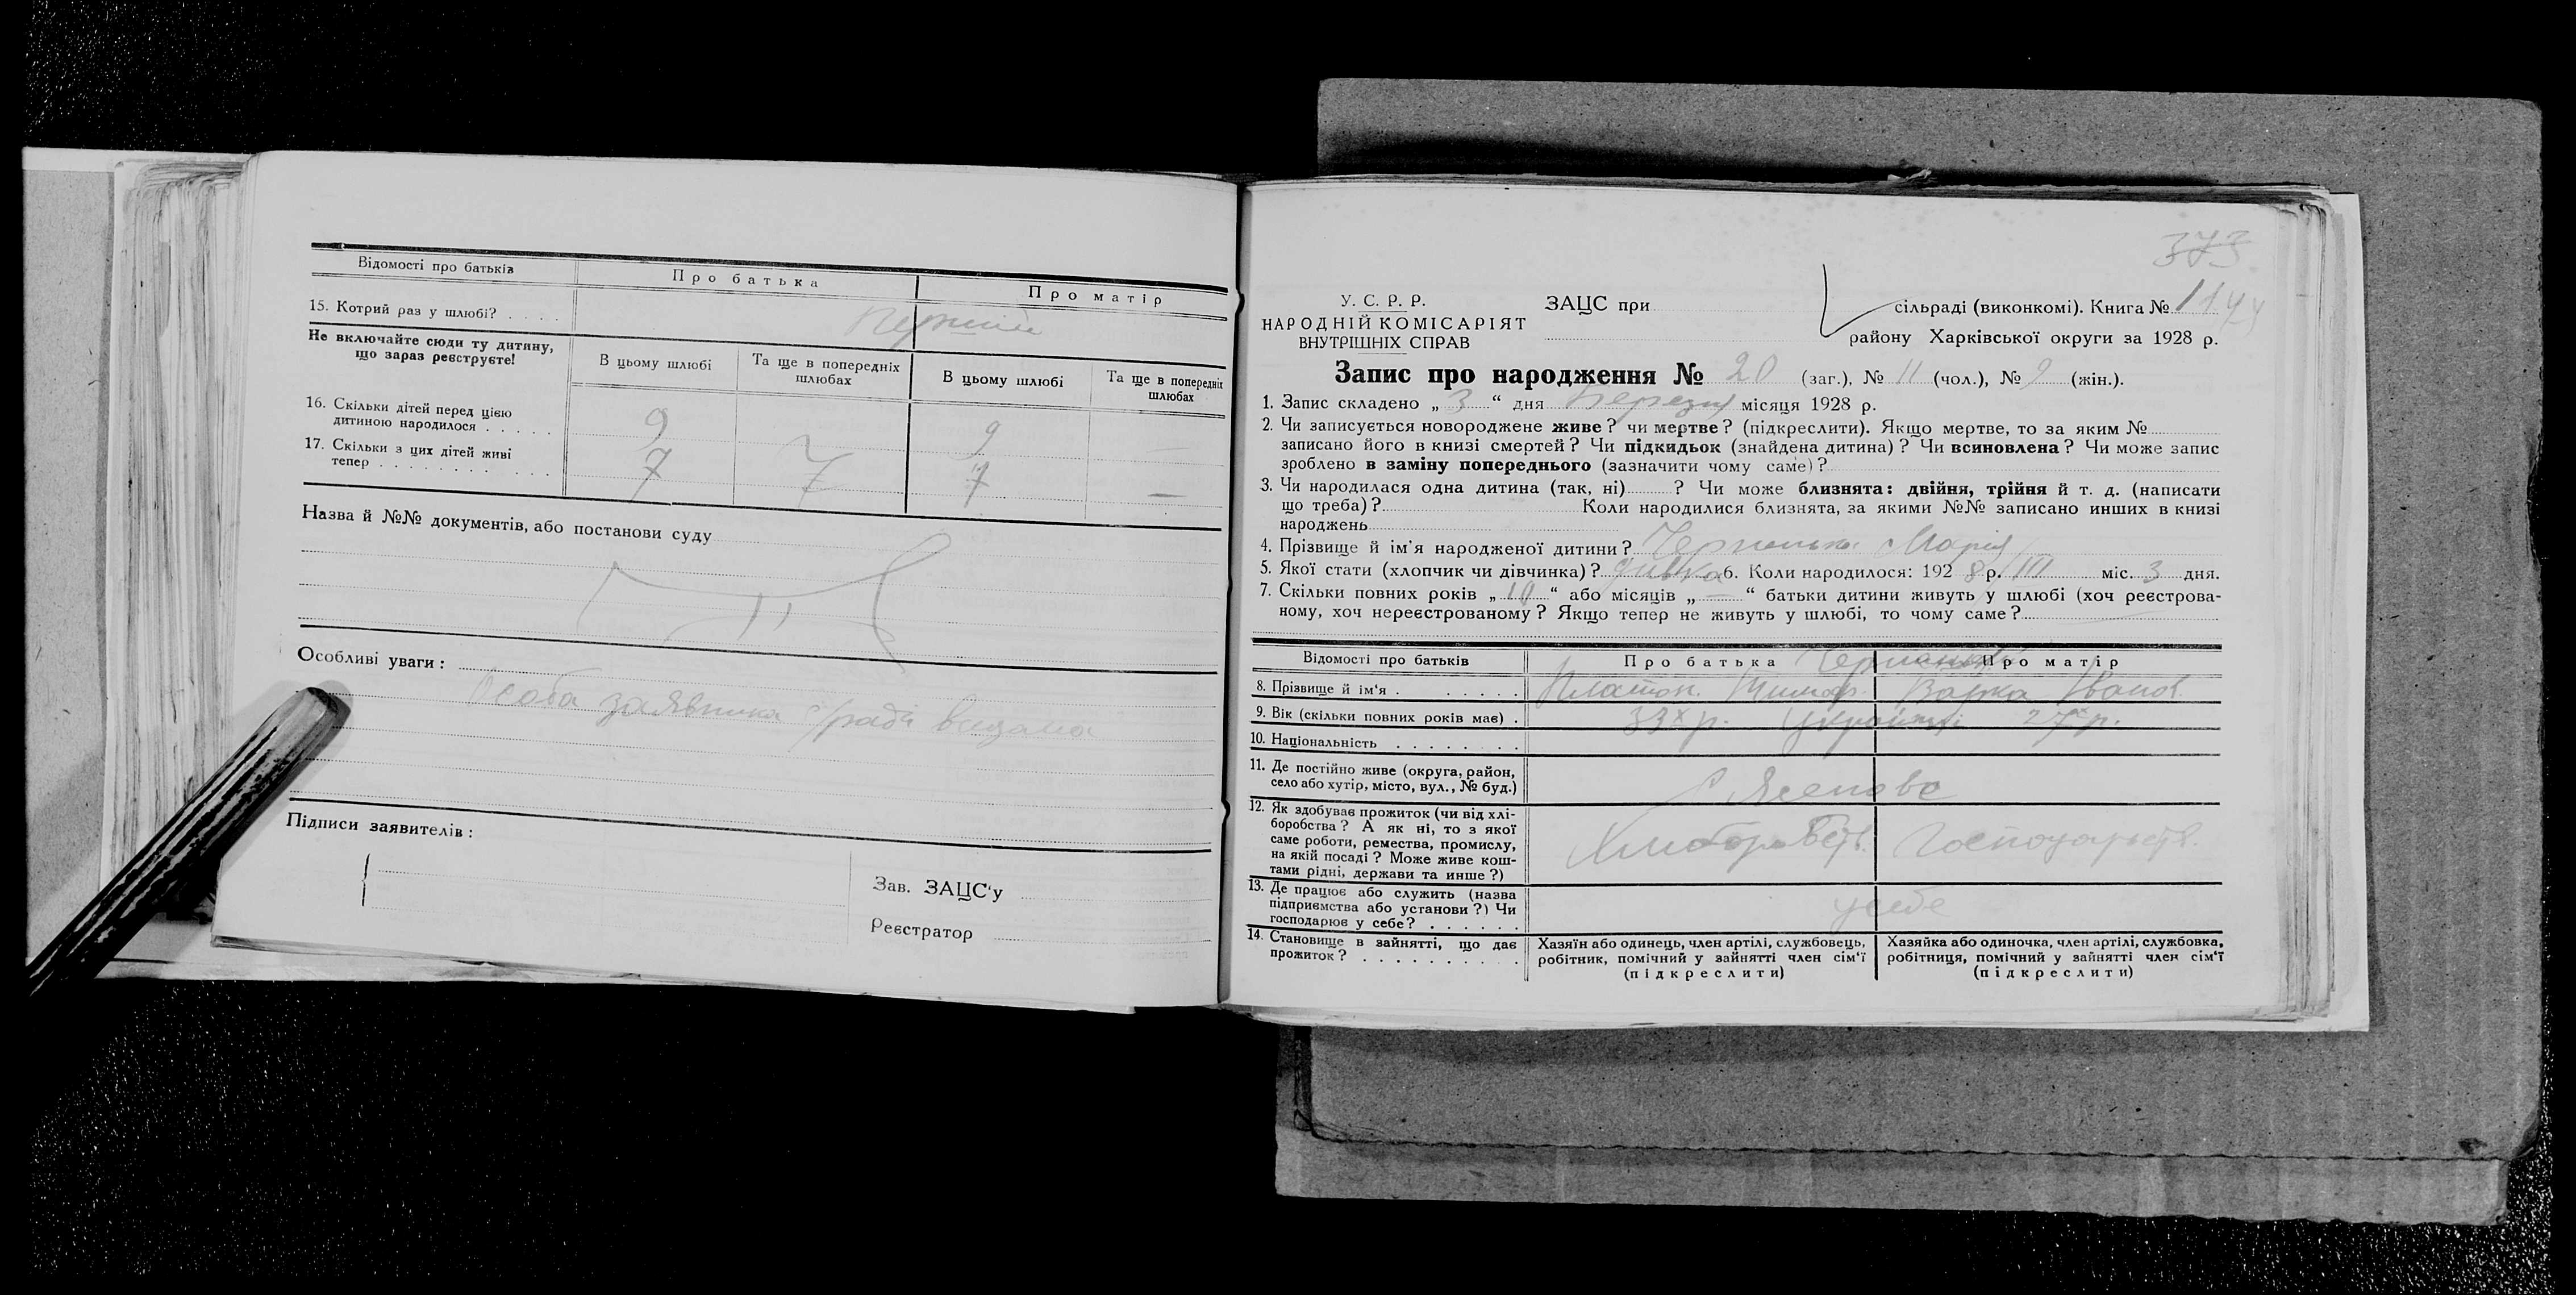 Відомості про батьків
Про батька
Про матір
15. Котрий раз у шлюбі? . . . .
Перший
Не включайте сюди ту дитину,
що зараз реєструєте!
В цьому шлюбі
Та ще в попередніх
шлюбах
В цьому шлюбі
Та ще в попередніх
шлюбах
16. Скільки дітей перед цією
дитиною народилося . . . . .
9
9
17. Скільки з цих дітей живі
тепер . . . . . . . . . . .
7
7
7
—
Назва й №№ документів, або постанови суду
Особливі уваги :
Особа заявника с/раді відома
Підписи заявителів :
Зав. ЗАЦС'у
Реєстратор
373
У. С. Р. Р.
НАРОДНІЙ КОМІСАРІЯТ
ВНУТРІШНІХ СПРАВ
ЗАЦС при
сільраді (виконкомі). Книга №
району Харківської округи за 1928 р.
Запис про народження № 20 (заг.), № 11 (чол.), № 9 (жін.).
1. Запис складено „ 3 “ дня Березня місяця 1928 р.
2. Чи записується новороджене живе? чи мертве? (підкреслити). Якщо мертве, то за яким №
записано його в книзі смертей? Чи підкидьок (знайдена дитина)? Чи всиновлена? Чи може запис
зроблено в заміну попереднього (зазначити чому саме)?
3. Чи народилася одна дитина (так, ні) ? Чи може близнята: двійня, трійня й т. д. (написати
що треба)? Коли народилися близнята, за якими №№ записано инших в книзі
народжень
4. Прізвище й ім'я народженої дитини? Марія
5. Якої стати (хлопчик чи дівчинка)? дивка 6. Коли народилося: 192 8 р. III міс. 3 дня.
7. Скільки повних років „ 10 “ або місяців „ — “ батьки дитини живуть у шлюбі (хоч реєстрова-
ному, хоч нереєстрованому? Якщо тепер не живуть у шлюбі, то чому саме?
Відомості про батьків
Про батька
Про матір
8. Прізвище й ім'я . . . . . .
Платон. Тимоф.
Варка Іванов.
9. Вік (скільки повних років має) .
33х р.
Українці
27х р.
10. Національність . . . . . . . .
11. Де постійно живе (округа, район,
село або хутір, місто, вул., № буд.)
12. Як здобуває прожиток (чи від хлі-
боробства? А як ні, то з якої
саме роботи, ремества, промислу,
на якій посаді? Може живе кош-
тами рідні, держави та инше?)
Хліборобств.
Господарств.
13. Де працює або служить (назва
підприємства або установи?) Чи
господарює у себе? . . . . . .
у себе
14. Становище в зайнятті, що дає
прожиток? . . . . . . . . . .
Хазяїн або одинець, член артілі, службовець,
робітник, помічний у зайнятті член сім'ї
(підкреслити)
Хазяйка або одиночка, член артілі, службовка,
робітниця, помічний у зайнятті член сім'ї
(підкреслити)